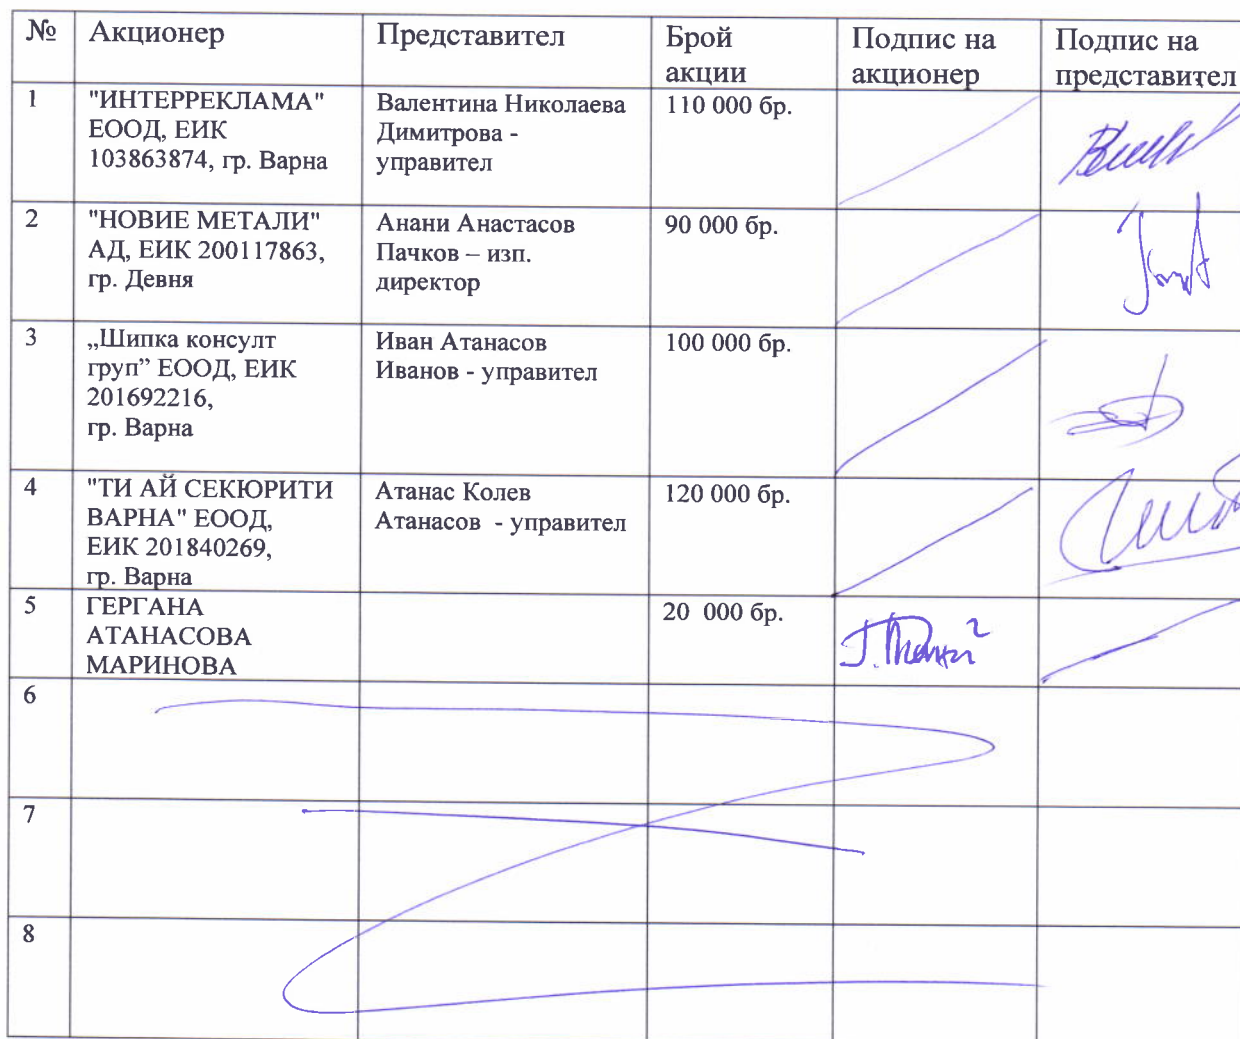 № Акционер Представител Брой акции Подпис на акционер Подпис на представител
1 "ИНТЕРРЕКЛАМА" ЕООД, ЕИК 103863874, гр. Варна Валентина Николаева Димитрова - управител 110 000 бр.
2 "НОВИЕ МЕТАЛИ" АД, ЕИК 200117863, гр. Девня Анани Анастасов Пачков – изп. директор 90 000 бр.
3 „Шипка консулт груп” ЕООД, ЕИК 201692216, гр. Варна Иван Атанасов Иванов - управител 100 000 бр.
4 "ТИ АЙ СЕКЮРИТИ ВАРНА" ЕООД, ЕИК 201840269, гр. Варна Атанас Колев Атанасов - управител 120 000 бр.
5 ГЕРГАНА АТАНАСОВА МАРИНОВА 20 000 бр.
6
7
8